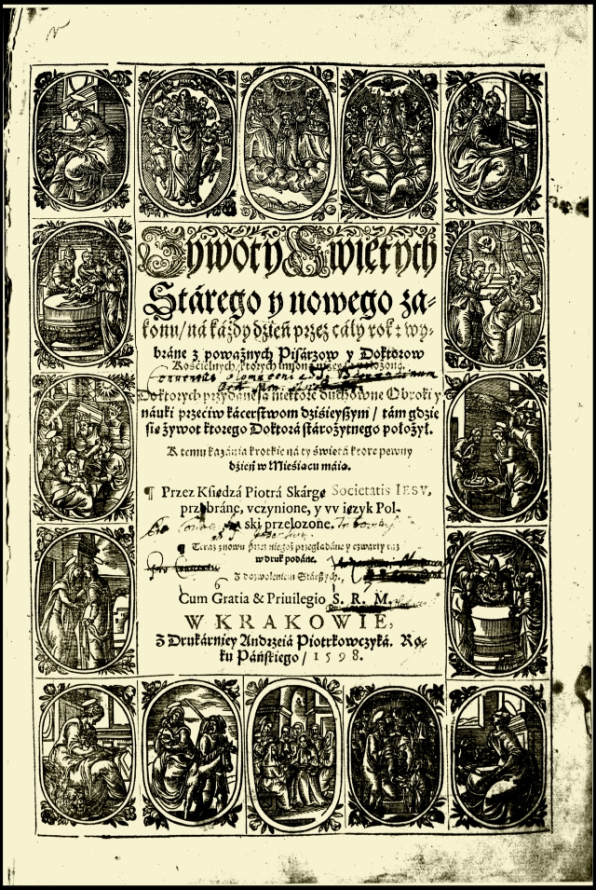 Żywoty Świętych
Stárego y nowego za-
konu / ná káżdy dzień przez cáły rok: wy-
bráne z poważnych Pisárzow y Doktorow
Kościelnych / ktorych imioná niżey są położone.
Do ktorych przydáne są niektore duchowne Obroki y
náuki przeciw kácerstwom dzisieyszym / tám gdzie
sie żywot ktorego Doktorá stárożytnego położył.
K temu kazánia krotkie ná ty świętá ktore pewny
dzień w Mieśiącu máią.
¶ Przez Kśiędzá Piotrá Skárgę Societatis IESV,
przebráne, vczynione, y vv ięzyk Pol-
ski przelozone.
¶ Teraz znowu przez niegoż przeglądáne y czwarty raz
w druk podáne.
Z dozwoleniem Stárszych.
Cum Gratia & Priuilegio S. R. M.
W KRAKOWIE,
Z Drukárniey Andrzeiá Piotrkowczyká. Ro-
ku Páńskiego / 1598.